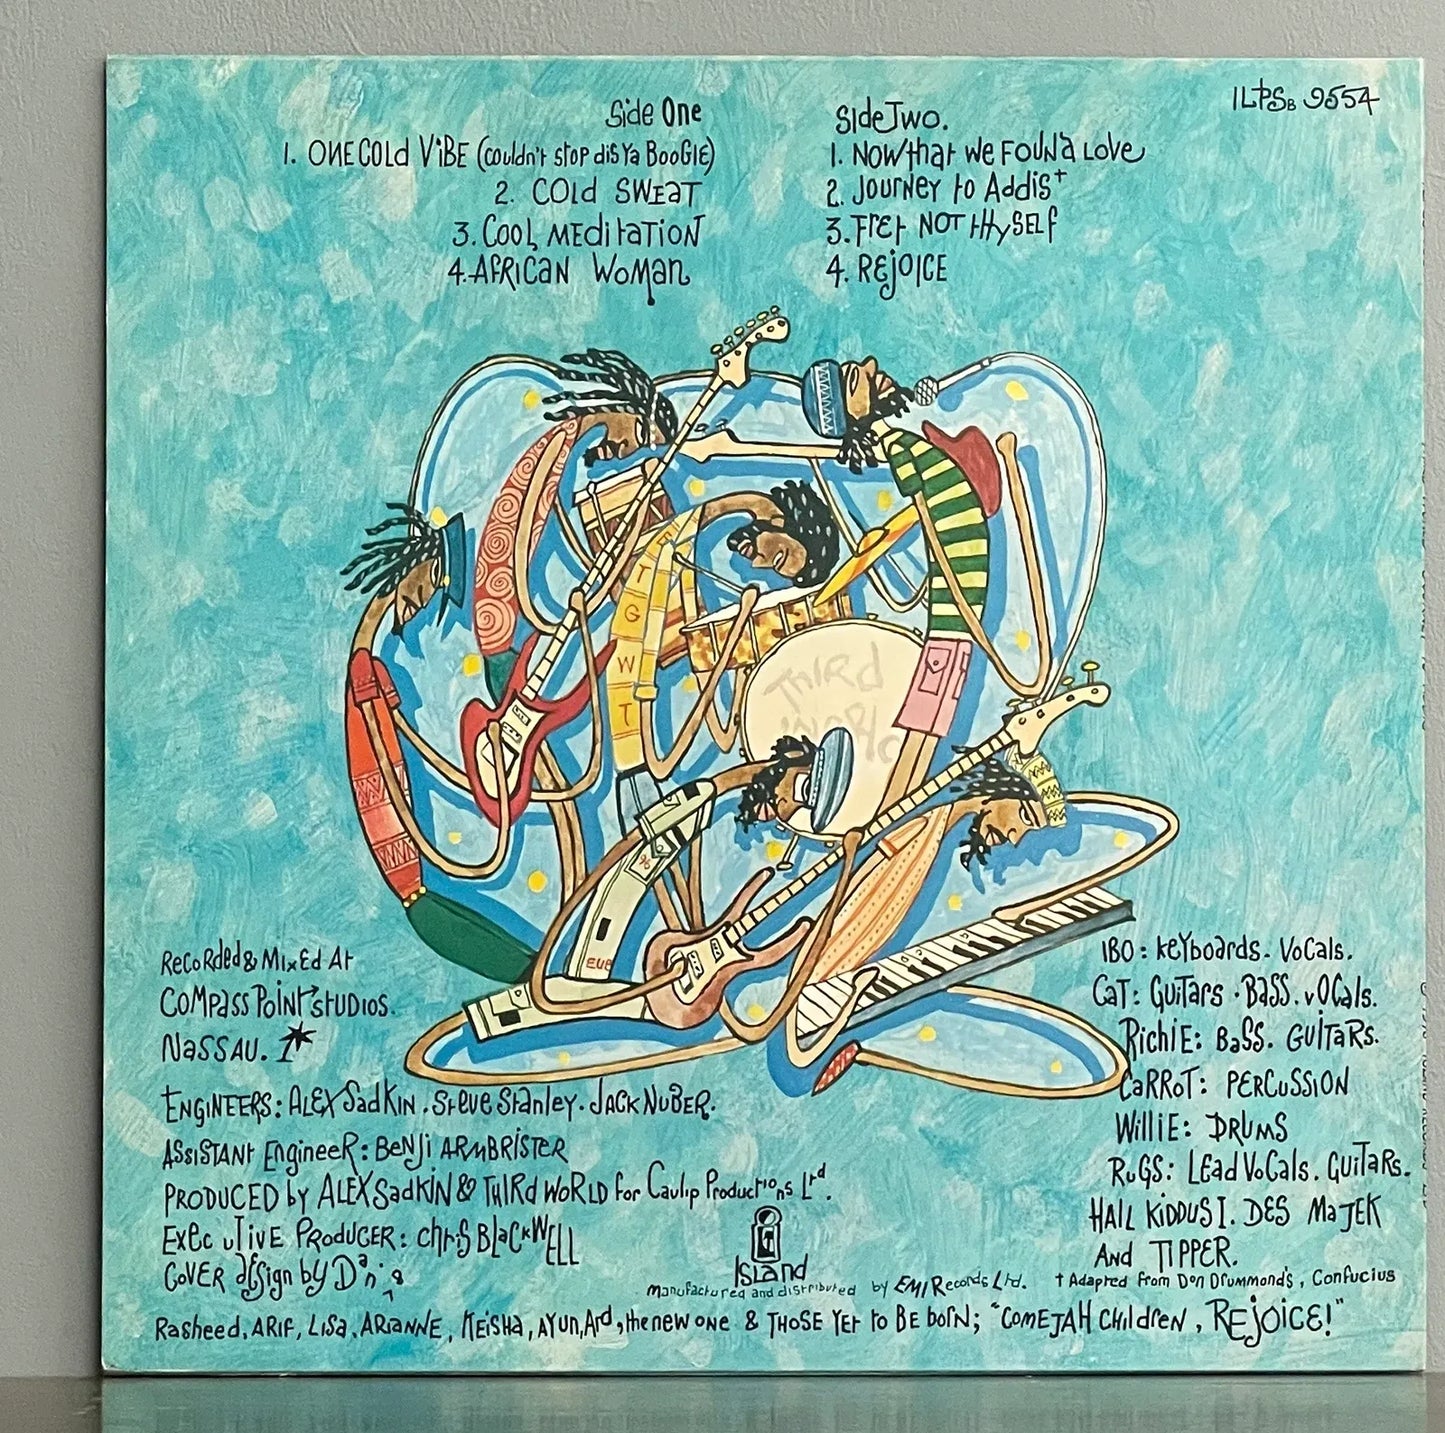 ILPS B 9554
Side One
1. ONE COLD VIBE (Couldn't stop dis Ya BOOGIE)
2. COLD SWEAT
3. COOL MEDITATION
4. AFRICAN WOMAN
Side Two.
1. NOW that WE FOUND LOVE
2. JOURNEY to Addis†
3. FRET NOT tHySELF
4. REJOICE
E
T
G
W
T
THIRD
WORLD
%
EUB
Recorded & Mixed At
COMPASS POINT STUDIOS.
NASSAU. 1*
ENGINEERS: ALEX Sadkin. Steve Stanley. JACK NUBER.
ASSISTANT Engineer: BENJI ARMBRISTER
PRODUCED by ALEX Sadkin & THIRD WORLD for Caulip Productions Ltd.
Executive PRODUCER: Chris BLACKWELL
COVER design by Dani's
IBO: KEYboards. Vocals.
CAT: Guitars. BASS. vOCals.
Richie: BASS. GUITARS.
CARROT: PERCUSSION
Willie: DRUMS
RUGS: LEAD Vocals. Guitars.
HAIL KIDDUS I. DES MAJEK
And TIPPER.
† Adapted from Don Drummond's, Confucius
Island
Manufactured and distributed by EMI Records Ltd.
Rasheed, ARIF, LISA, ARIANNE, KEisha, AYUN, Ard, the new one & THOSE YET to BE born; "COME JAH Children, REJOICE!"